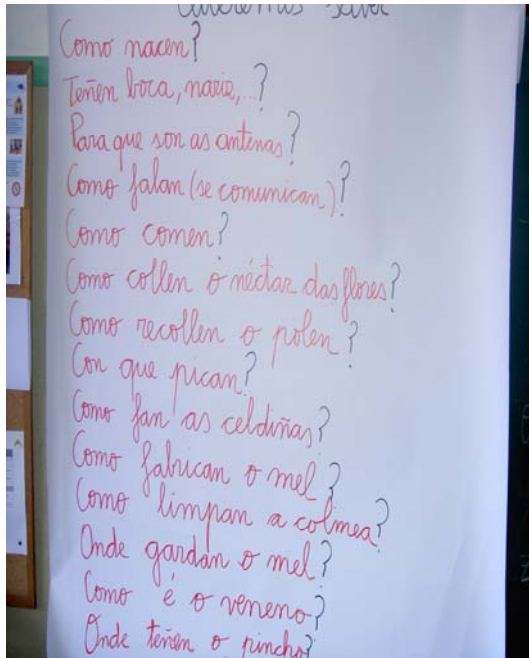 Queremos saber
Como nacen?
Teñen boca, nariz,...?
Para que son as antenas?
Como falan (se comunican)?
Como comen?
Como collen o néctar das flores?
Como recollen o polen?
Con que pican?
Como fan as celdiñas?
Como fabrican o mel?
Como limpan a colmea?
Onde gardan o mel?
Como é o veneno?
Onde teñen o pincho?